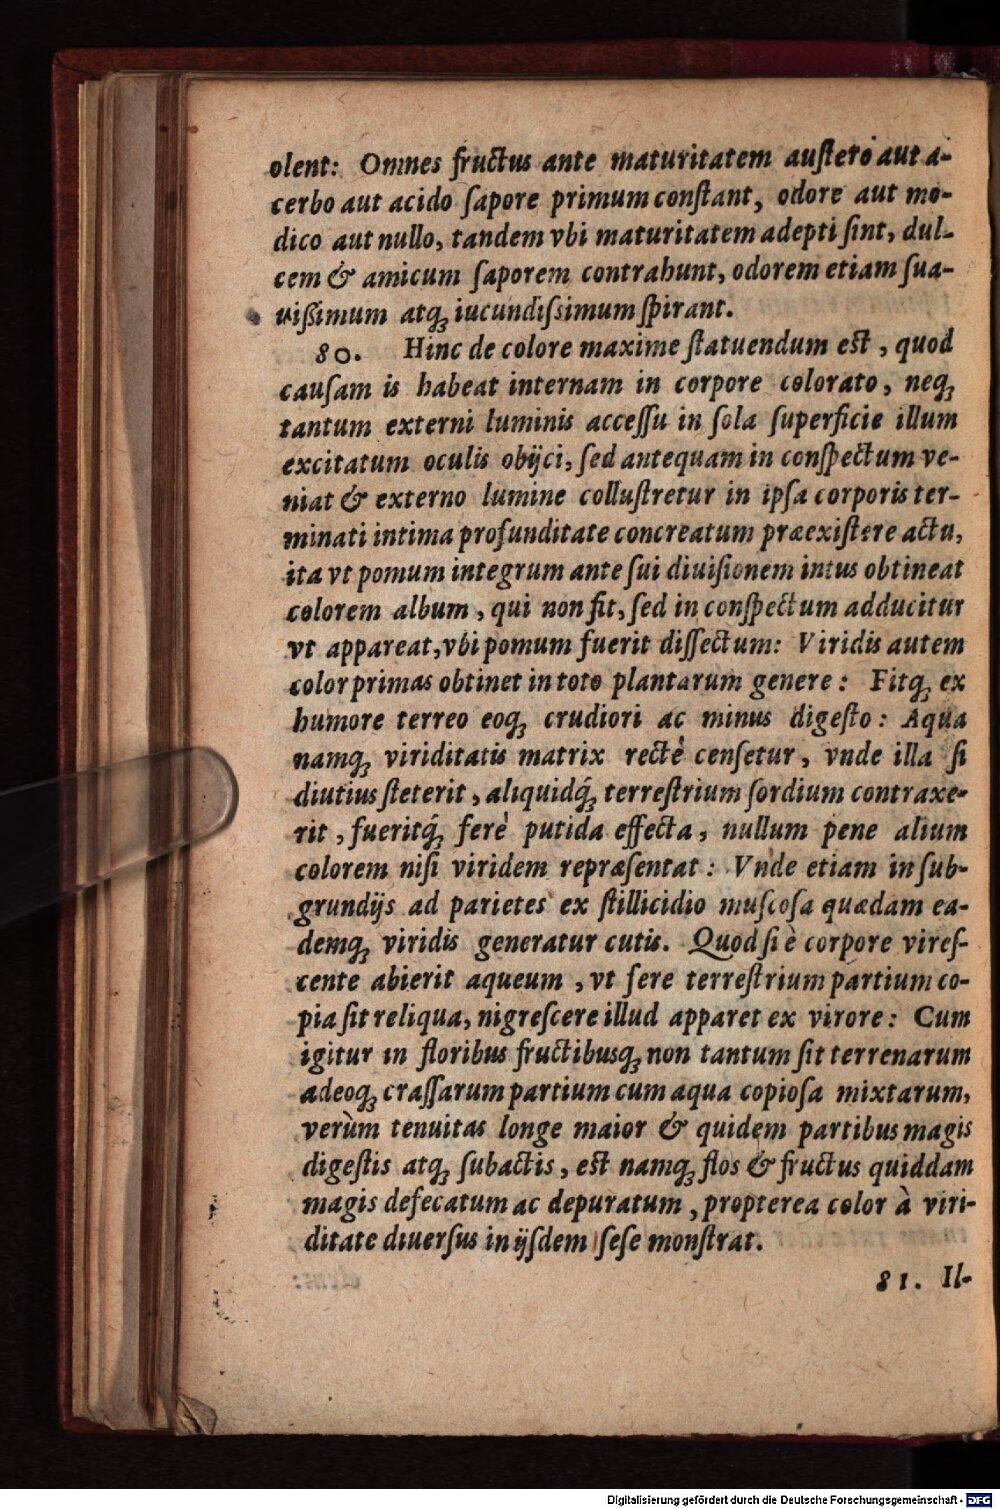 olent: Omnes fructus ante maturitatem austero aut a-
cerbo aut acido ſapore primum conſtant, odore aut mo-
dico aut nullo, tandem vbi maturitatem adepti ſint, dul-
cem & amicum ſaporem contrahunt, odorem etiam ſua-
uiſſimum atq́ꝫ iucundiſsimum ſpirant.
80. Hinc de colore maxime ſtatuendum eſt, quod
cauſam is habeat internam in corpore colorato, neqꝫ
tantum externi luminis acceſſu in ſola ſuperficie illum
excitatum oculis obijci, ſed antequam in conſpectum ve-
niat & externo lumine colluſtretur in ipſa corporis ter-
minati intima profunditate concreatum præexiſtere actu,
ita vt pomum integrum ante ſui diuiſionem intus obtineat
colorem album, qui non fit, ſed in conſpectum adducitur
vt appareat, vbi pomum fuerit diſſectum: Viridis autem
color primas obtinet in toto plantarum genere: Fitqꝫ ex
humore terreo eoqꝫ crudiori ac minus digeſto: Aqua
namqꝫ viriditatis matrix rectè cenſetur, vnde illa ſi
diutius ſteterit, aliquidq́ꝫ terreſtrium ſordium contraxe-
rit, fueritq́ꝫ ferè putida effecta, nullum pene alium
colorem niſi viridem repræſentat: Vnde etiam in ſub-
grundijs ad parietes ex ſtillicidio muſcoſa quædam ea-
demqꝫ viridis generatur cutis. Quod ſi è corpore vireſ-
cente abierit aqueum, vt fere terreſtrium partium co-
pia ſit reliqua, nigreſcere illud apparet ex virore: Cum
igitur in floribus fructibusqꝫ non tantum ſit terrenarum
adeoqꝫ craſſarum partium cum aqua copioſa mixtarum,
verùm tenuitas longe maior & quidem partibus magis
digeſtis atqꝫ ſubactis, eſt namqꝫ flos & fructus quiddam
magis defecatum ac depuratum, propterea color à viri-
ditate diuerſus in ijſdem ſeſe monſtrat.
81. Il-
Digitalisierung gefördert durch die Deutsche Forschungsgemeinschaft - DFG